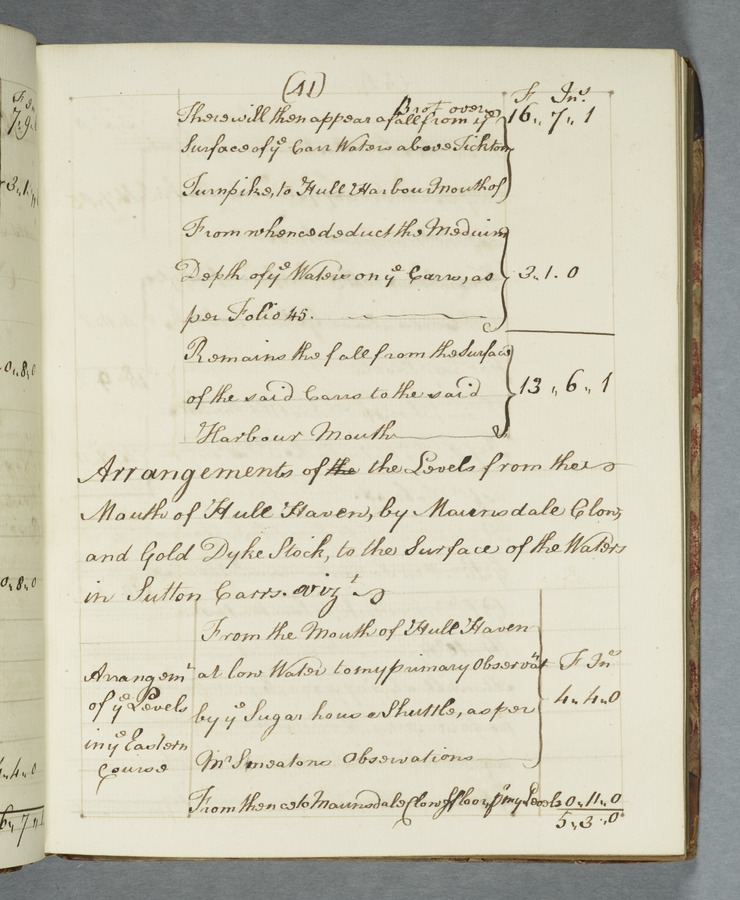 (41)
Brot over
F Ins.
There will then appear a fall from ye 16,, 7,, 1
Surface of ye Carr Waters above Tickton
Turnpike, to Hull Harbour Mouth of
From whence deduct the Medium
Depth of ye Waters on ye Carrs, as 3,, 1. 0
per Folio 45.
Remains the fall from the Surface
of the said Carrs to the said 13,, 6,, 1
Harbour Mouth
Arrangements of the the Levels from the
Mouth of Hull Haven, by Maunsdale Clow,
and Gold Dyke Stock, to the Surface of the Waters
in Sutton Carrs. vizt
From the Mouth of Hull Haven
Arrangemt at low Water to my primary Observat F Ins
of ye Levels by ye Sugar house Shuttle, as per 4,, 4,, 0
in ye Eastern
Course Mr Smeatons Observations
From thence to Maunsdale Clow ffloor, p my Levels 0,, 11,, 0
5,, 3,, 0